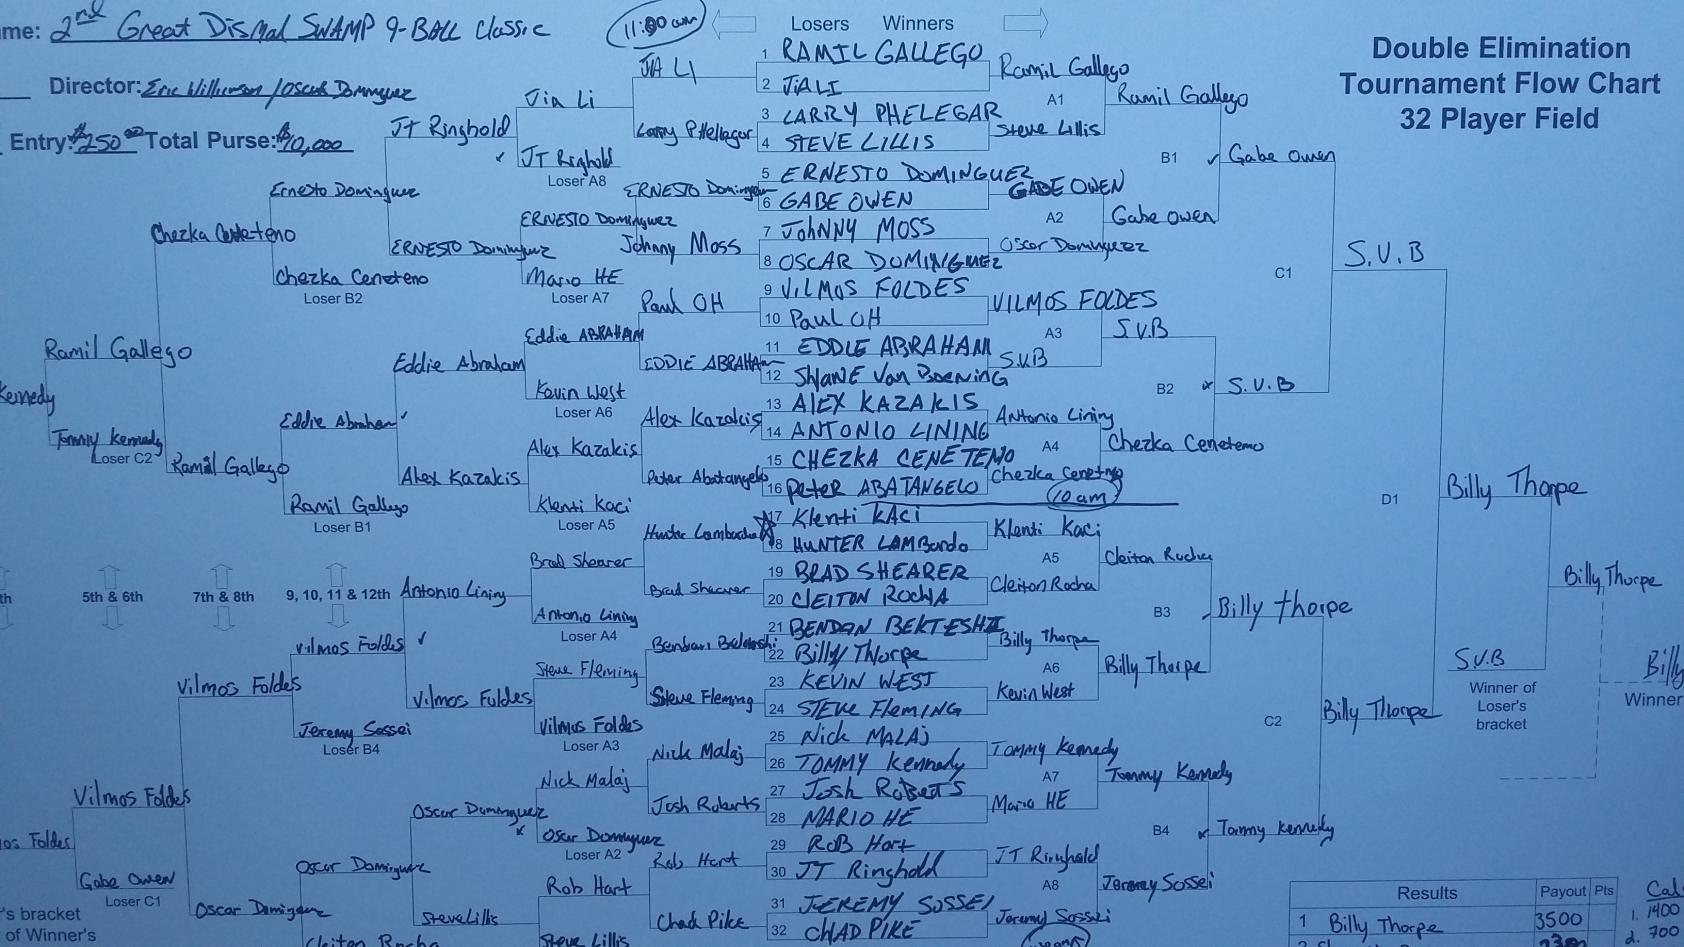 me: 2nd Great Dismal SWAMP 9-BALL Classic
11:00 am
Losers Winners
Double Elimination
Tournament Flow Chart
32 Player Field
Director: Eric Wilkerson/Oscar Dominguez
Entry: $250.00 Total Purse: $10,000
1 RAMIL GALLEGO
2 JIA LI
3 LARRY PHELEGAR
4 STEVE LILLIS
5 ERNESTO DOMINGUEZ
6 GABE OWEN
7 JohNNY MOSS
8 OSCAR DOMINGUEZ
9 VILMOS FOLDES
10 Paul OH
11 EDDIE ABRAHAM
12 SHANE Van BOENING
13 AlEX KAZAKIS
14 ANTONIO LINING
15 CHEZKA CENETENO
16 PeteR ABATANGELO
17 Klenti KACi
18 HUNTER LAMBardo
19 BRAD SHEARER
20 ClEITON ROCHA
21 BENDAN BEKTESHI
22 Billy Thorpe
23 KEVIN WEST
24 STEVE FlemING
25 Nick MALAj
26 TOMMY Kennedy
27 Josh RoBertS
28 MARIO HE
29 RoB Hart
30 JT Ringhold
31 JEREMY SOSSEI
32 CHAD PIKE
Ramil Gallego
A1
Steve Lillis
GABE OWEN
A2
Oscar Dominguez
VILMOS FOLDES
A3
S.V.B
Antonio Lining
A4
Chezka Ceneteno
10 am
Klenti Kaci
A5
Cleiton Rocha
Billy Thorpe
A6
Kevin West
TOMMY Kennedy
A7
Mario HE
JT Ringhold
A8
Jeremy Sossei
Ramil Gallego
B1
Gabe Owen
S.V.B
B2
Chezka Cenetemo
Cleiton Rocha
B3
Billy Thorpe
Tommy Kennedy
B4
Jeremy Sossei
Gabe Owen
C1
S.V.B
Billy thorpe
C2
Tommy Kennedy
S.V.B
D1
Billy Thorpe
Billy Thorpe
S.V.B
Winner of
Loser's
bracket
Billy Thorpe
Billy
Winner
JIA LI
Larry PHellegar
ERNESTO Dominguez
Johnny Moss
Paul OH
EDDIE ABRAHAM
Alex Kazakis
Peter Abatangelo
Hunter Lombardo
Brad Shearer
Steve Fleming
Nick Malaj
Josh Roberts
Rob Hart
Chad Pike
Jia Li
JT Righold
Loser A8
ERNESTO Dominguez
Mario HE
Loser A7
Eddie ABRAHAM
Kevin West
Loser A6
Alex Kazakis
Klenti Kaci
Loser A5
Brad Shearer
Antonio Lining
Loser A4
Steve Fleming
Vilmos Foldes
Loser A3
Nick Malaj
Oscar Dominguez
Loser A2
Rob Hart
Steve Lillis
JT Ringhold
ERNESTO Dominguez
Eddie Abraham
Alex Kazakis
Antonio Lining
Vilmos Foldes
Oscar Dominguez
Steve Lillis
Ernesto Dominguez
Chezka Ceneteno
Loser B2
Eddie Abraham
Ramil Gallego
Loser B1
th
5th & 6th
7th & 8th
9, 10, 11 & 12th
Vilmos Foldes
Jeremy Sossei
Loser B4
Oscar Dominguez
Cleiton Rocha
Chezka Ceneteno
Ramil Gallego
Vilmos Foldes
Oscar Dominguez
Ramil Gallego
Tommy Kennedy
Loser C2
Vilmos Foldes
Gabe Owen
Loser C1
Kennedy
os Foldes
's bracket
of Winner's
Results Payout Pts
1 Billy Thorpe 3500
Cal
1. 1400
2. 700